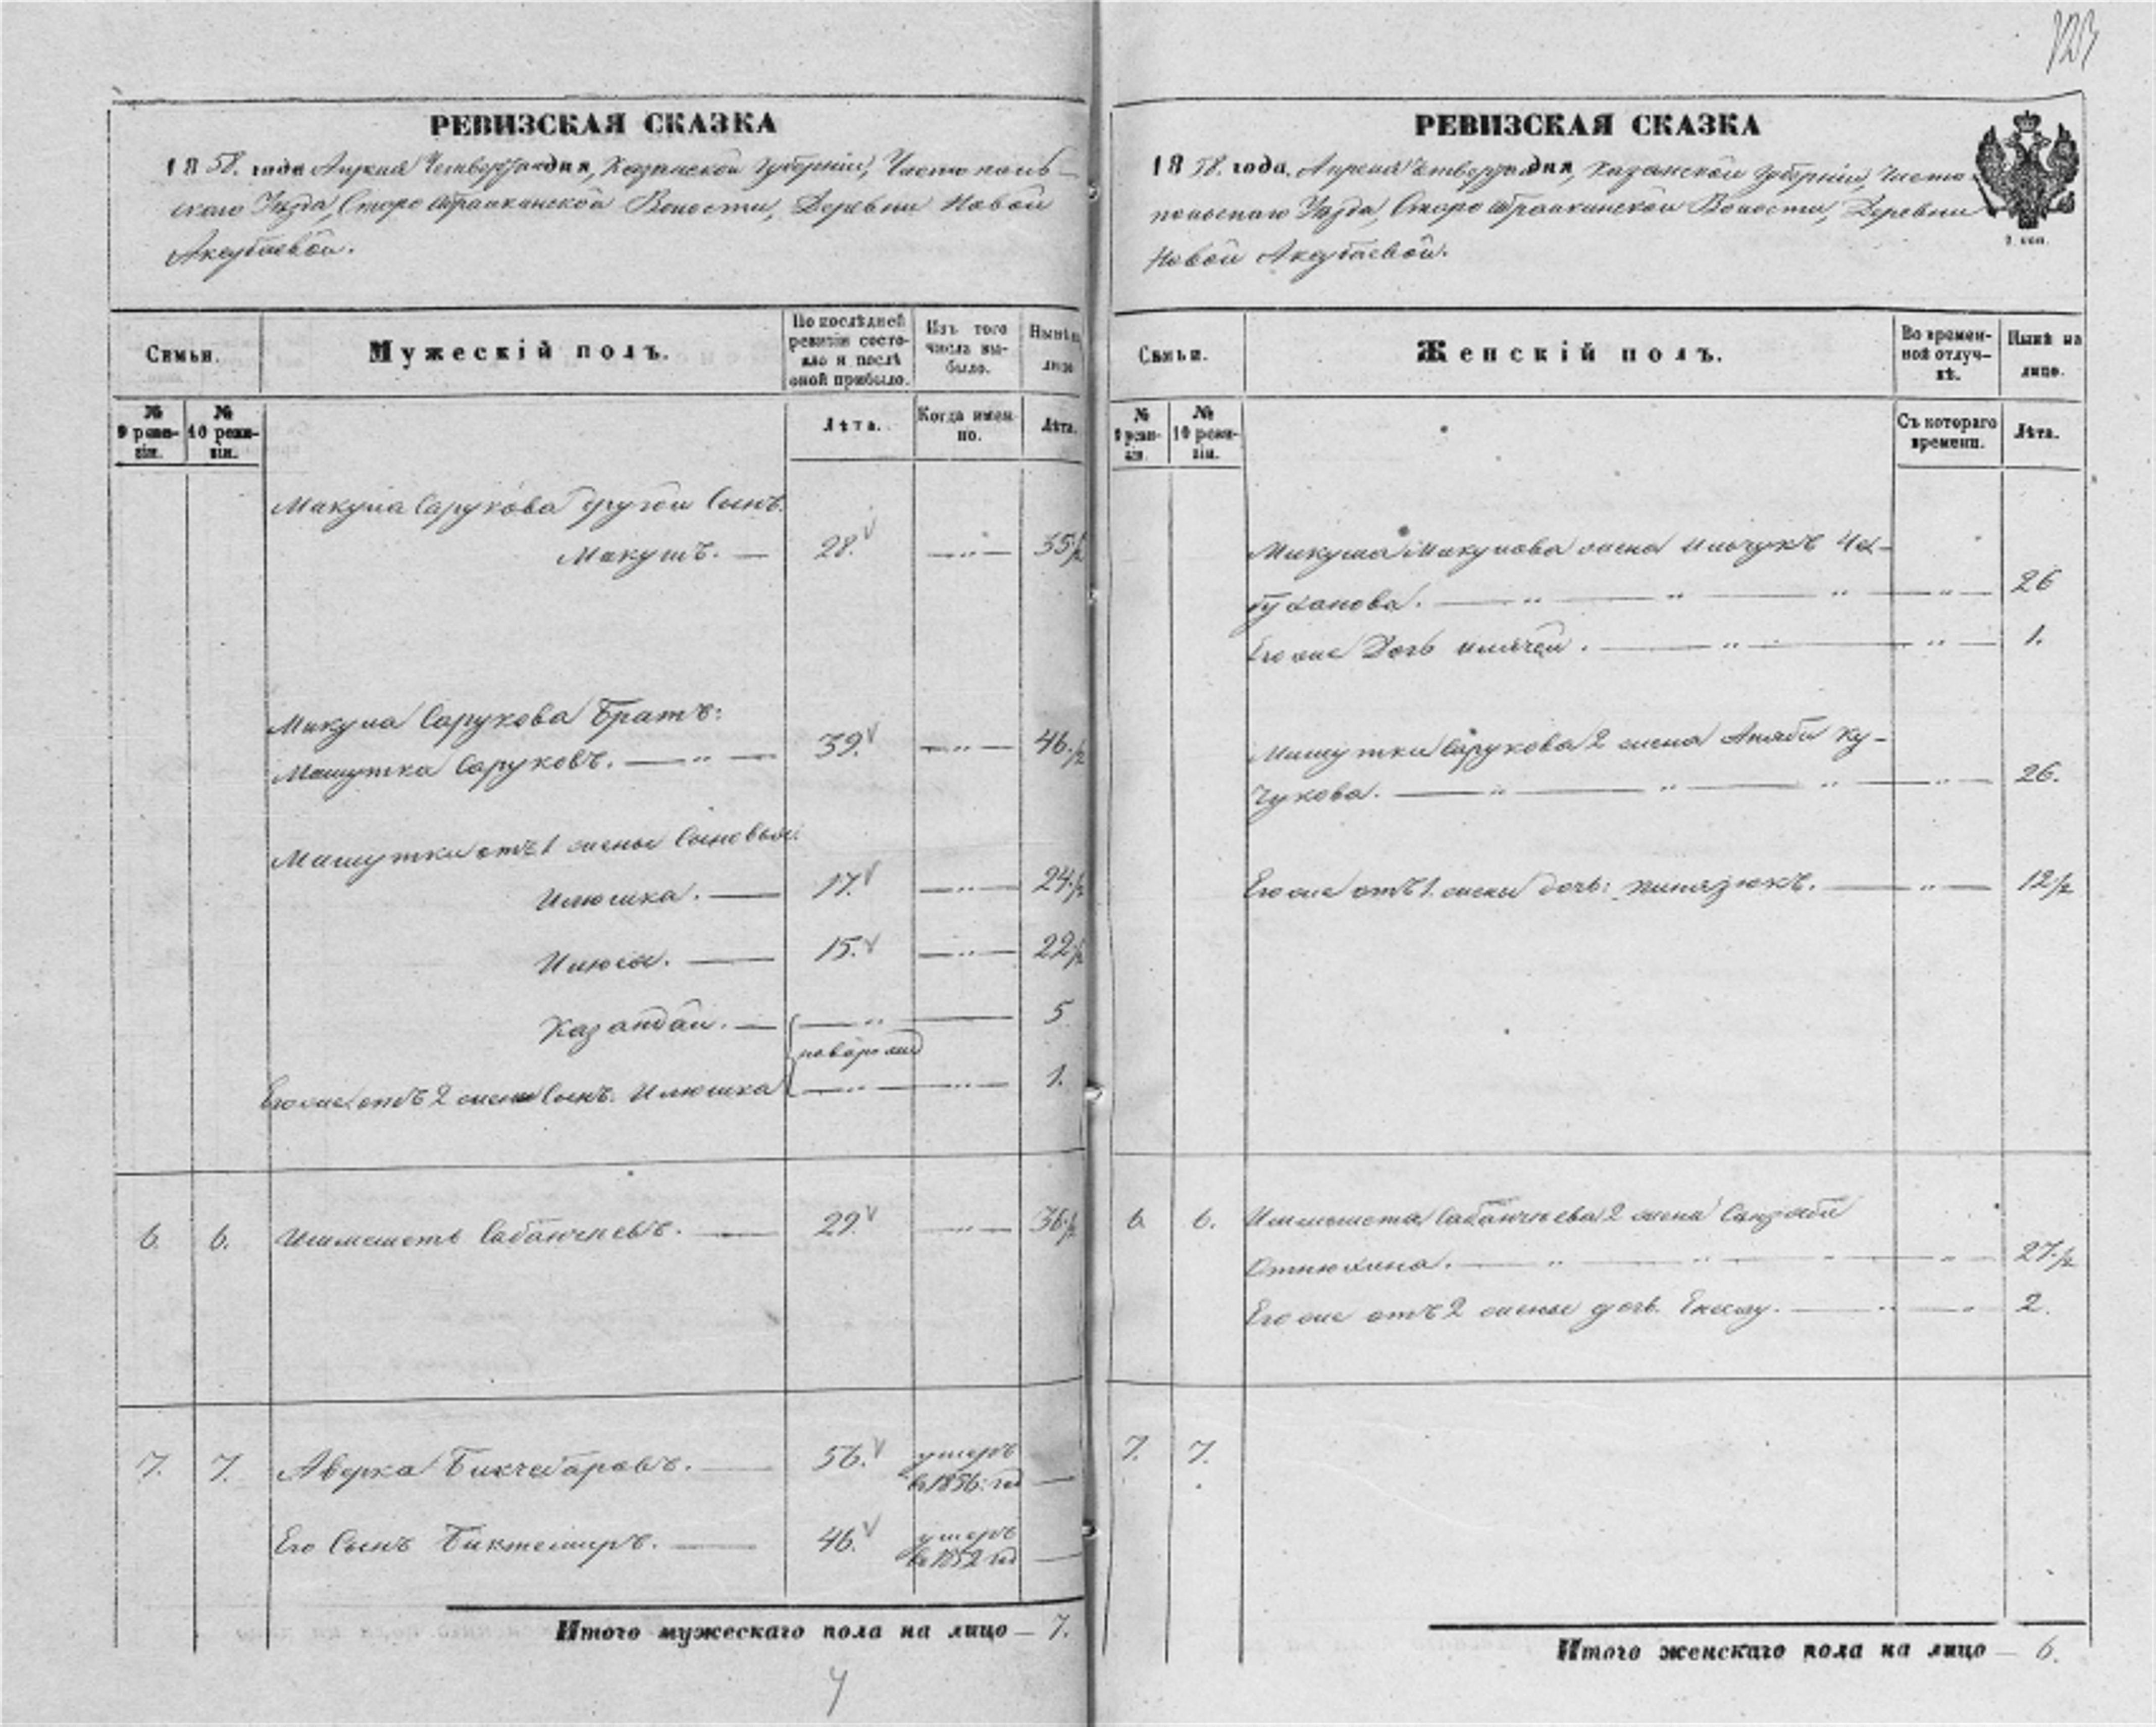 123
РЕВИЗСКАЯ СКАЗКА
1858. года Апреля Четвертаго дня, Казанской Губерніи, Чистополь-
скаго Уезда, Старо Ибрайкинской Волости, Деревни Новой
Аксубаевой.
Семьи.
Мужескій полъ.
По послѣдней
ревизіи состо-
яло и послѣ
оной прибыло.
Изъ того
числа вы-
было.
Нынѣ на
лицо
№
9 реви-
зіи.
№
10 реви-
зіи.
Лѣта.
Когда имен-
но.
Лѣта.
Микула Сарукова другой Сынъ.
Микушъ. — 28. —"— 35 1/2
Микула Сарукова Братъ:
Мишутка Саруковъ. —"— 39. —"— 46. 1/2
Мишутки отъ 1 жены Сыновья:
Илюшка. — 17. —"— 24. 1/2
Илюха. — 15. —"— 22. 1/2
Казандай. — —"— 5
новорожд
Его же отъ 2 жены Сынъ. Илюшка —"— —"— 1.
6. 6. Ишметь Сабанчеевъ. — 29. —"— 36. 1/2
7. 7. Аверка Бикчебаровъ. — 56. умеръ
в 1856. год —
Его Сынъ Биктемиръ. — 46. умеръ
в 1852 год —
Итого мужескаго пола на лицо — 7.
РЕВИЗСКАЯ СКАЗКА
1858. года. Апреля Четвертаго дня, Казанской Губерніи, Чисто-
польскаго Уезда, Старо Ибрайкинской Волости, Деревни
Новой Аксубаевой.
Семьи.
Женскій полъ.
Во времен-
ной отлуч-
кѣ.
Нынѣ на
лицо.
№
9 реви-
зіи.
№
10 реви-
зіи.
Съ котораго
времени.
Лѣта.
Микуша Микулова жена
26
Его же Дочь — " — " — 1.
Мишутки Сарукова 2 жена Ку-
чукова. — " — " — " — " — 26.
Его же отъ 1. жены дочь: — " — 12 1/2
6. 6. Сабанчеева 2 жена
— " — " — " — " — 27. 1/2
Его же отъ 2 жены дочь. — " — " 2.
7. 7.
Итого женскаго пола на лицо — 6.